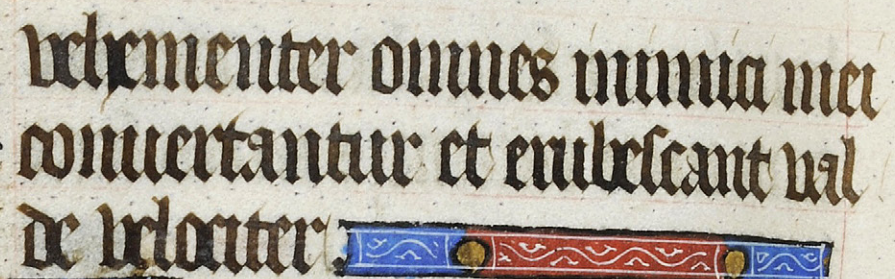 vehementer omnes inimici mei
conuertantur et erubescant val
de velociter.